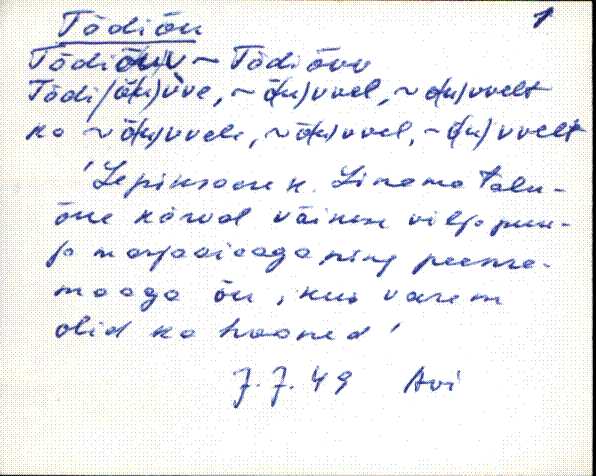 1
Tõdiõu
Tõdiõuv ~ Tõdiõvv
Tõdi/õ(u)vve, ~ õ(u)vvel, ~ õ(u)vvelt
ka ~ õ(u)vvele, ~ õ(u)vvel, ~ õ(u)vvelt
'Lepiksaare k. Linama talu-
õue kõrval väikese viljapuu-
ja marjaaiaga ning peenra-
maaga õu, kus varem
olid ka hooned'
7.7.49 Avi